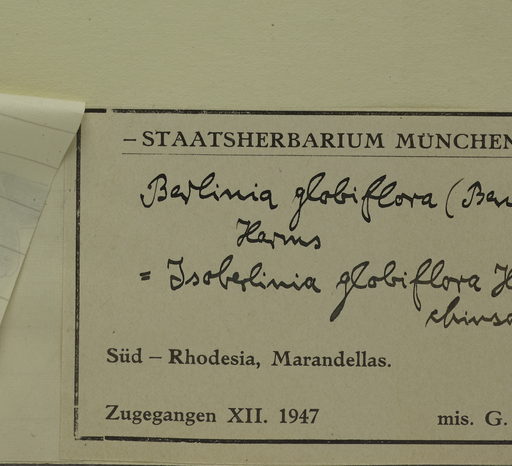 – STAATSHERBARIUM MÜNCHEN
Berlinia globiflora (Ben
Harms
= Isoberlinia globiflora H
chinso
Süd – Rhodesia, Marandellas.
Zugegangen XII. 1947 mis. G.